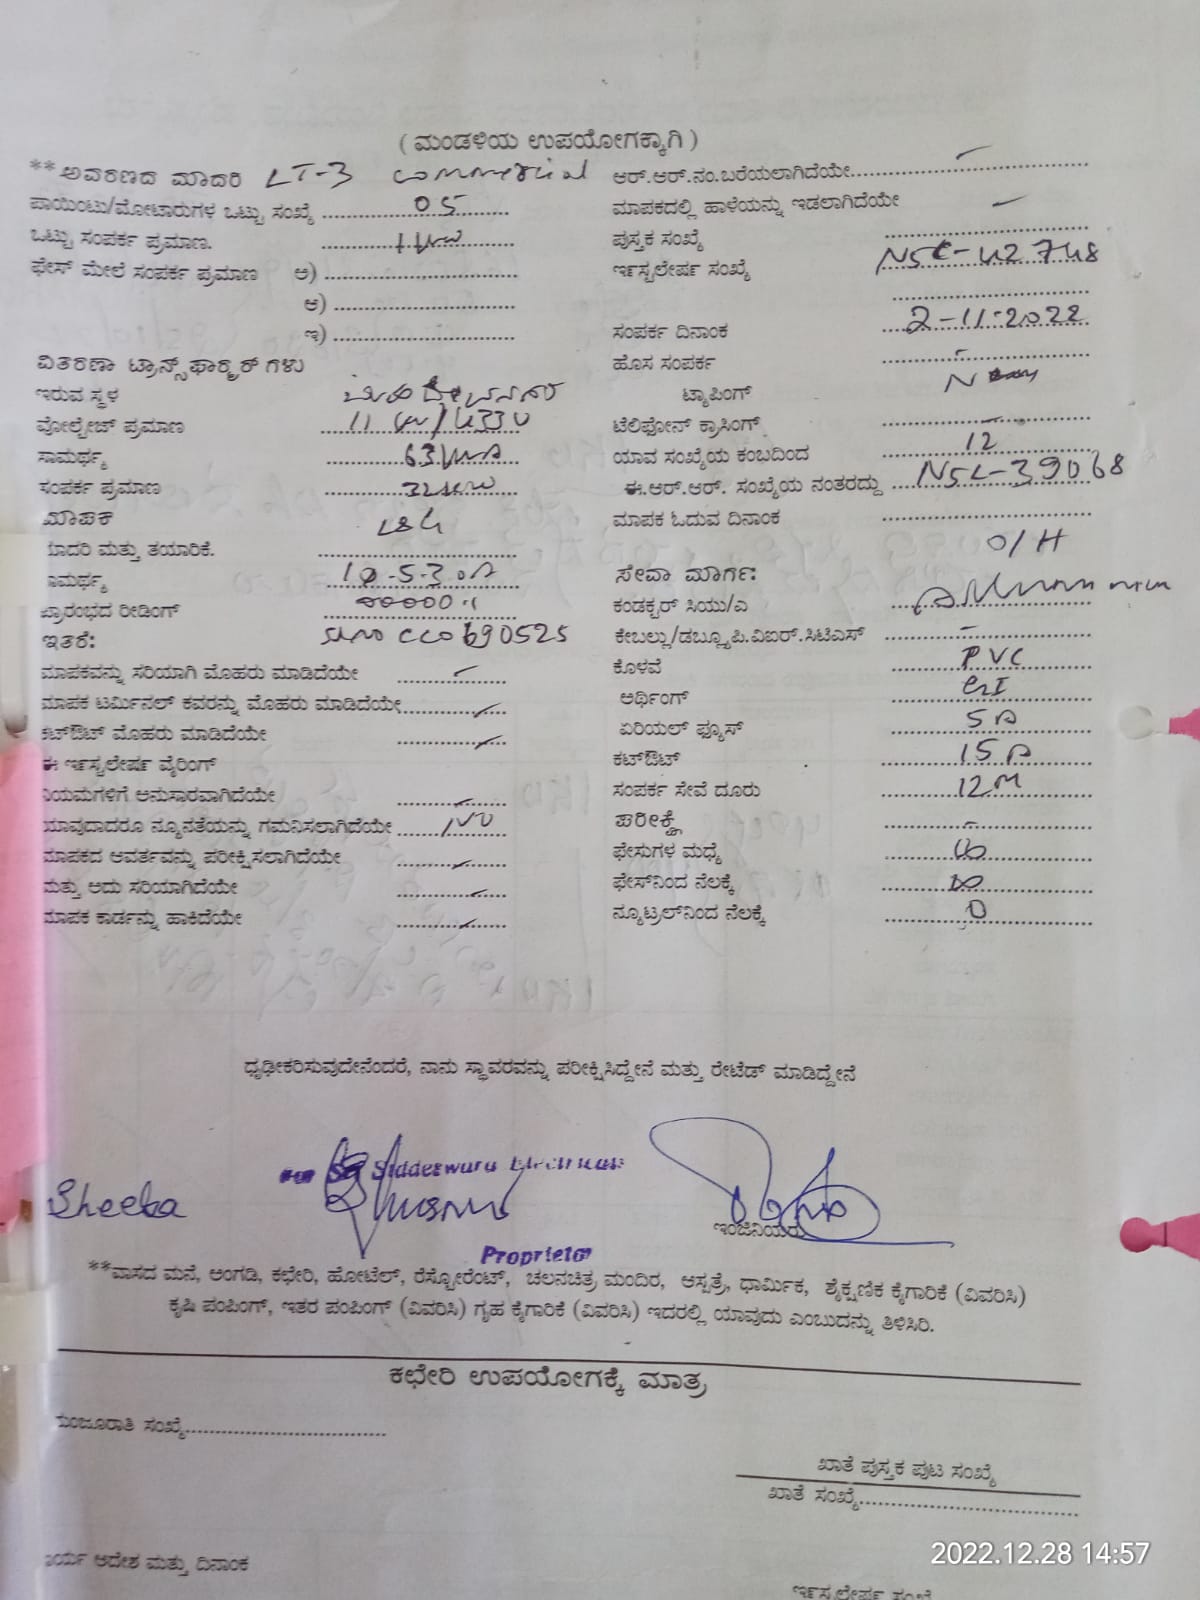 ( ಮಂಡಳಿಯ ಉಪಯೋಗಕ್ಕಾಗಿ )
**ಅವರಣದ ಮಾದರಿ LT-3 commercial
ಪಾಯಿಂಟು/ಮೋಟಾರುಗಳ ಒಟ್ಟು ಸಂಖ್ಯೆ 05
ಒಟ್ಟು ಸಂಪರ್ಕ ಪ್ರಮಾಣ.
ಫೇಸ್ ಮೇಲೆ ಸಂಪರ್ಕ ಪ್ರಮಾಣ ಅ)
ಆ)
ಇ)
ವಿತರಣಾ ಟ್ರಾನ್ಸ್‌ಫಾರ್ಮರ್‌ಗಳು
ಇರುವ ಸ್ಥಳ
ವೋಲ್ಟೇಜ್ ಪ್ರಮಾಣ
ಸಾಮರ್ಥ್ಯ
ಸಂಪರ್ಕ ಪ್ರಮಾಣ
ಮಾಪಕ L&G
ಮಾದರಿ ಮತ್ತು ತಯಾರಿಕೆ.
ಸಾಮರ್ಥ್ಯ 10-5-30A
ಪ್ರಾರಂಭದ ರೀಡಿಂಗ್
ಇತರೆ: CC0690525
ಮಾಪಕವನ್ನು ಸರಿಯಾಗಿ ಮೊಹರು ಮಾಡಿದೆಯೇ
ಮಾಪಕ ಟರ್ಮಿನಲ್ ಕವರನ್ನು ಮೊಹರು ಮಾಡಿದೆಯೇ
ಕಟ್‌ಔಟ್ ಮೊಹರು ಮಾಡಿದೆಯೇ
ಈ ಇನ್ಸ್ಟಲೇಷನ್ ವೈರಿಂಗ್
ನಿಯಮಗಳಿಗೆ ಅನುಸಾರವಾಗಿದೆಯೇ
ಯಾವುದಾದರೂ ನ್ಯೂನತೆಯನ್ನು ಗಮನಿಸಲಾಗಿದೆಯೇ NO
ಮಾಪಕದ ಆವರ್ತವನ್ನು ಪರೀಕ್ಷಿಸಲಾಗಿದೆಯೇ
ಮತ್ತು ಅದು ಸರಿಯಾಗಿದೆಯೇ
ಮಾಪಕ ಕಾರ್ಡನ್ನು ಹಾಕಿದೆಯೇ
ಆರ್.ಆರ್.ನಂ.ಬರೆಯಲಾಗಿದೆಯೇ
ಮಾಪಕದಲ್ಲಿ ಹಾಳೆಯನ್ನು ಇಡಲಾಗಿದೆಯೇ
ಪುಸ್ತಕ ಸಂಖ್ಯೆ
ಇನ್ಸ್ಟಲೇಷನ್ ಸಂಖ್ಯೆ NSL-42748
ಸಂಪರ್ಕ ದಿನಾಂಕ 2-11-2022
ಹೊಸ ಸಂಪರ್ಕ
ಟ್ಯಾಪಿಂಗ್
ಟೆಲಿಫೋನ್ ಕ್ರಾಸಿಂಗ್
ಯಾವ ಸಂಖ್ಯೆಯ ಕಂಬದಿಂದ 12
ಈ.ಆರ್.ಆರ್. ಸಂಖ್ಯೆಯ ನಂತರದ್ದು NSL-39068
ಮಾಪಕ ಓದುವ ದಿನಾಂಕ
ಸೇವಾ ಮಾರ್ಗ: O/H
ಕಂಡಕ್ಟರ್ ಸಿಯು/ಎ
ಕೇಬಲ್ಲು/ಡಬ್ಲ್ಯೂಪಿ.ವಿಐಆರ್.ಸಿಟಿಎಸ್
ಕೊಳವೆ PVC
ಅರ್ಥಿಂಗ್ GI
ಏರಿಯಲ್ ಫ್ಯೂಸ್ 5A
ಕಟ್‌ಔಟ್ 15A
ಸಂಪರ್ಕ ಸೇವೆ ದೂರು 12M
ಪರೀಕ್ಷೆ
ಫೇಸುಗಳ ಮಧ್ಯೆ ∞
ಫೇಸ್‌ನಿಂದ ನೆಲಕ್ಕೆ ∞
ನ್ಯೂಟ್ರಲ್‌ನಿಂದ ನೆಲಕ್ಕೆ 0
ಧೃಢೀಕರಿಸುವುದೇನೆಂದರೆ, ನಾನು ಸ್ಥಾವರವನ್ನು ಪರೀಕ್ಷಿಸಿದ್ದೇನೆ ಮತ್ತು ರೇಟೆಡ್ ಮಾಡಿದ್ದೇನೆ
For Siddeswara Electricals
Sheeba
ಇಂಜಿನಿಯರು
Proprietor
**ವಾಸದ ಮನೆ, ಅಂಗಡಿ, ಕಛೇರಿ, ಹೋಟೆಲ್, ರೆಸ್ಟೋರೆಂಟ್, ಚಲನಚಿತ್ರ ಮಂದಿರ, ಆಸ್ಪತ್ರೆ, ಧಾರ್ಮಿಕ, ಶೈಕ್ಷಣಿಕ ಕೈಗಾರಿಕೆ (ವಿವರಿಸಿ)
ಕೃಷಿ ಪಂಪಿಂಗ್, ಇತರ ಪಂಪಿಂಗ್ (ವಿವರಿಸಿ) ಗೃಹ ಕೈಗಾರಿಕೆ (ವಿವರಿಸಿ) ಇದರಲ್ಲಿ ಯಾವುದು ಎಂಬುದನ್ನು ತಿಳಿಸಿರಿ.
ಕಛೇರಿ ಉಪಯೋಗಕ್ಕೆ ಮಾತ್ರ
ಮಂಜೂರಾತಿ ಸಂಖ್ಯೆ
ಖಾತೆ ಪುಸ್ತಕ ಪುಟ ಸಂಖ್ಯೆ
ಖಾತೆ ಸಂಖ್ಯೆ
ಆದೇಶ ಮತ್ತು ದಿನಾಂಕ
2022.12.28 14:57